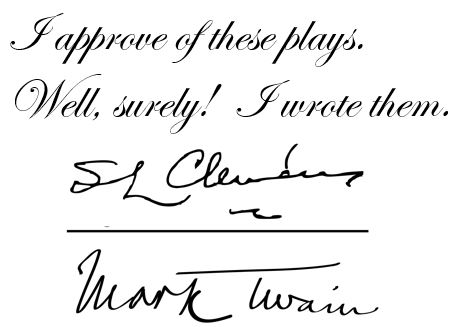 I approve of these plays.
Well, surely! I wrote them.
SL Clemens
Mark Twain